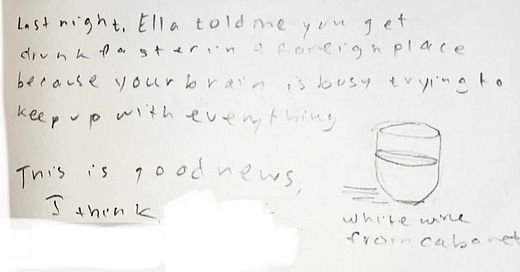 Last night, Ella told me you get
drunk faster in a foreign place
because your brain is busy trying to
keep up with everything
This is good news,
I think.
white wine
from cabaret